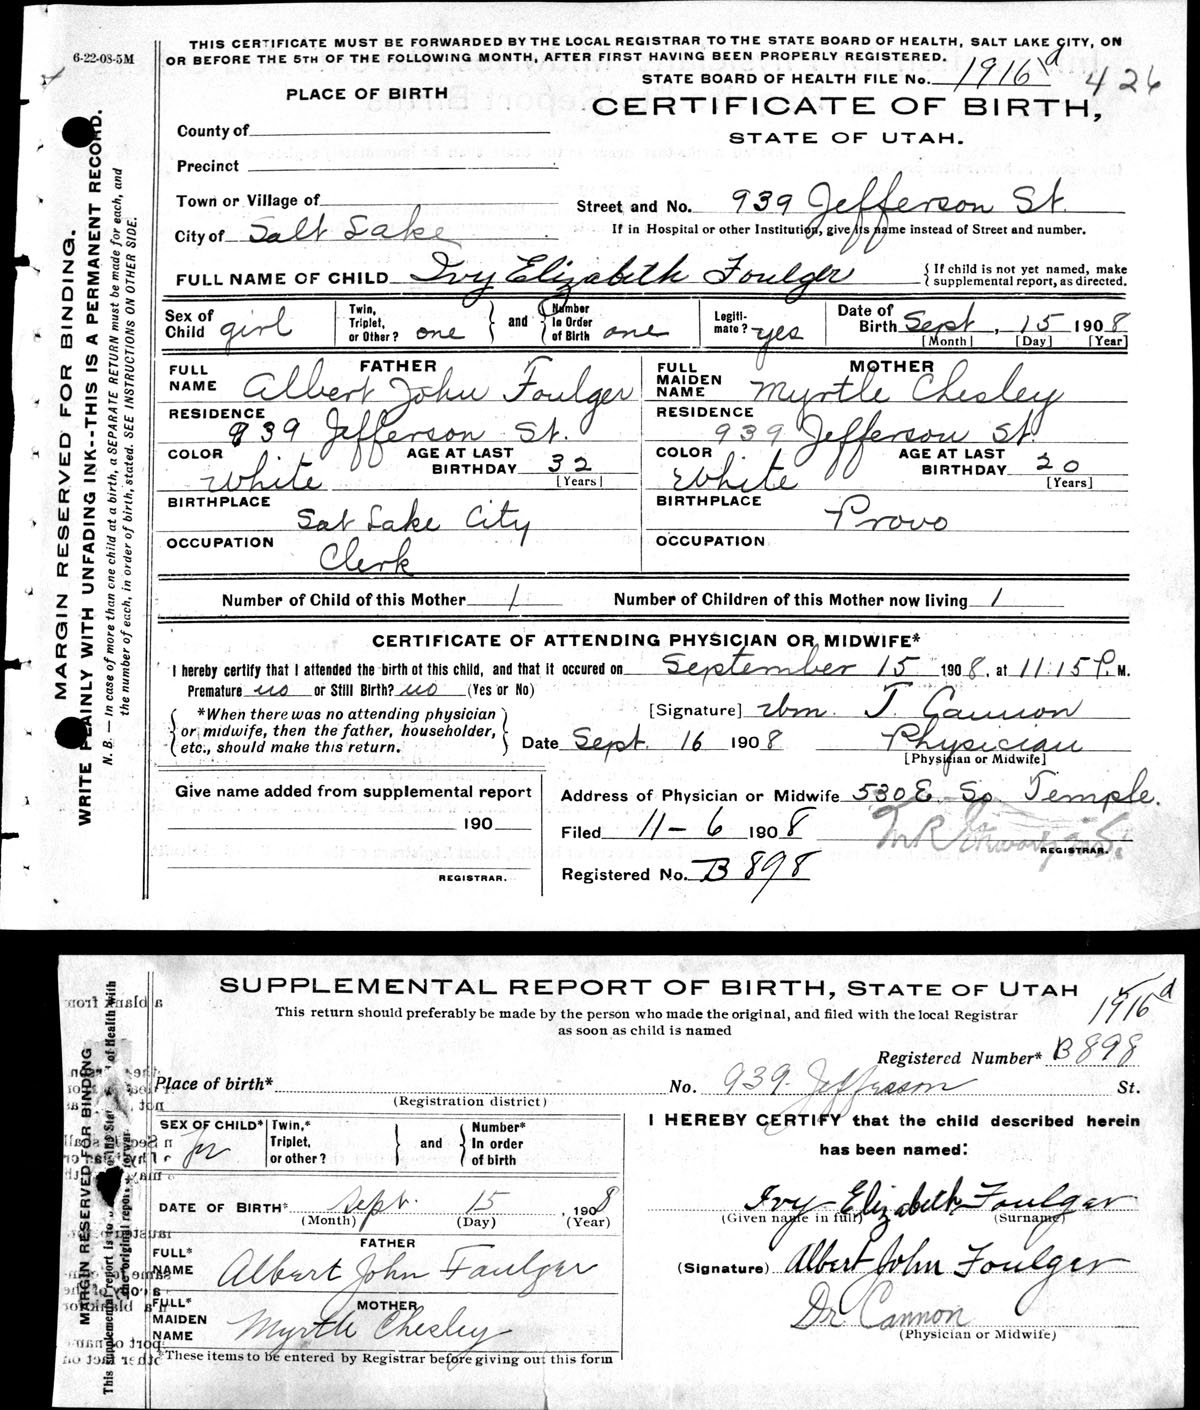 6-22-08-5M
THIS CERTIFICATE MUST BE FORWARDED BY THE LOCAL REGISTRAR TO THE STATE BOARD OF HEALTH, SALT LAKE CITY, ON
OR BEFORE THE 5TH OF THE FOLLOWING MONTH, AFTER FIRST HAVING BEEN PROPERLY REGISTERED.
STATE BOARD OF HEALTH FILE No. 1916 d 426
PLACE OF BIRTH
CERTIFICATE OF BIRTH,
STATE OF UTAH.
County of
Precinct
Town or Village of
Street and No. 939 Jefferson St.
City of Salt Lake
If in Hospital or other Institution, give its name instead of Street and number.
FULL NAME OF CHILD Ivy Elizabeth Foulger { If child is not yet named, make supplemental report, as directed.
Sex of Child girl Twin, Triplet, or Other? one } and { Number In Order of Birth one Legiti-mate? yes Date of Birth Sept, 15 1908
[Month] [Day] [Year]
FATHER MOTHER
FULL NAME Albert John Foulger FULL MAIDEN NAME Myrtle Chesley
RESIDENCE 939 Jefferson St. RESIDENCE 939 Jefferson St.
COLOR White AGE AT LAST BIRTHDAY 32 [Years] COLOR White AGE AT LAST BIRTHDAY 20 [Years]
BIRTHPLACE Sat Lake City BIRTHPLACE Provo
OCCUPATION Clerk OCCUPATION
Number of Child of this Mother 1 Number of Children of this Mother now living 1
CERTIFICATE OF ATTENDING PHYSICIAN OR MIDWIFE*
I hereby certify that I attended the birth of this child, and that it occured on September 15 1908, at 11:15 P. M.
Premature no or Still Birth? no (Yes or No)
[Signature] Wm. T. Cannon
{ *When there was no attending physician
or midwife, then the father, householder,
etc., should make this return. }
Date Sept. 16 1908 Physician
[Physician or Midwife]
Give name added from supplemental report
Address of Physician or Midwife 530 E. So. Temple.
190
Filed 11-6 1908
REGISTRAR.
Registered No. B 898
REGISTRAR.
MARGIN RESERVED FOR BINDING.
WRITE PLAINLY WITH UNFADING INK--THIS IS A PERMANENT RECORD.
N. B. — In case of more than one child at a birth, a SEPARATE RETURN must be made for each, and
the number of each, in order of birth, stated. SEE INSTRUCTIONS ON OTHER SIDE.
SUPPLEMENTAL REPORT OF BIRTH, STATE OF UTAH
1916 d
This return should preferably be made by the person who made the original, and filed with the local Registrar
as soon as child is named
Registered Number* B 898
Place of birth* No. 939 Jefferson St.
(Registration district)
SEX OF CHILD* Twin,* Triplet, or other? } and { Number* In order of birth
I HEREBY CERTIFY that the child described herein
has been named:
DATE OF BIRTH* Sept. 15, 1908
(Month) (Day) (Year)
Ivy Elizabeth Foulger
(Given name in full) (Surname)
FATHER
FULL* NAME Albert John Foulger
(Signature) Albert John Foulger
MOTHER
FULL* MAIDEN NAME Myrtle Chesley
Dr Cannon
(Physician or Midwife)
*These items to be entered by Registrar before giving out this form
MARGIN RESERVED FOR BINDING